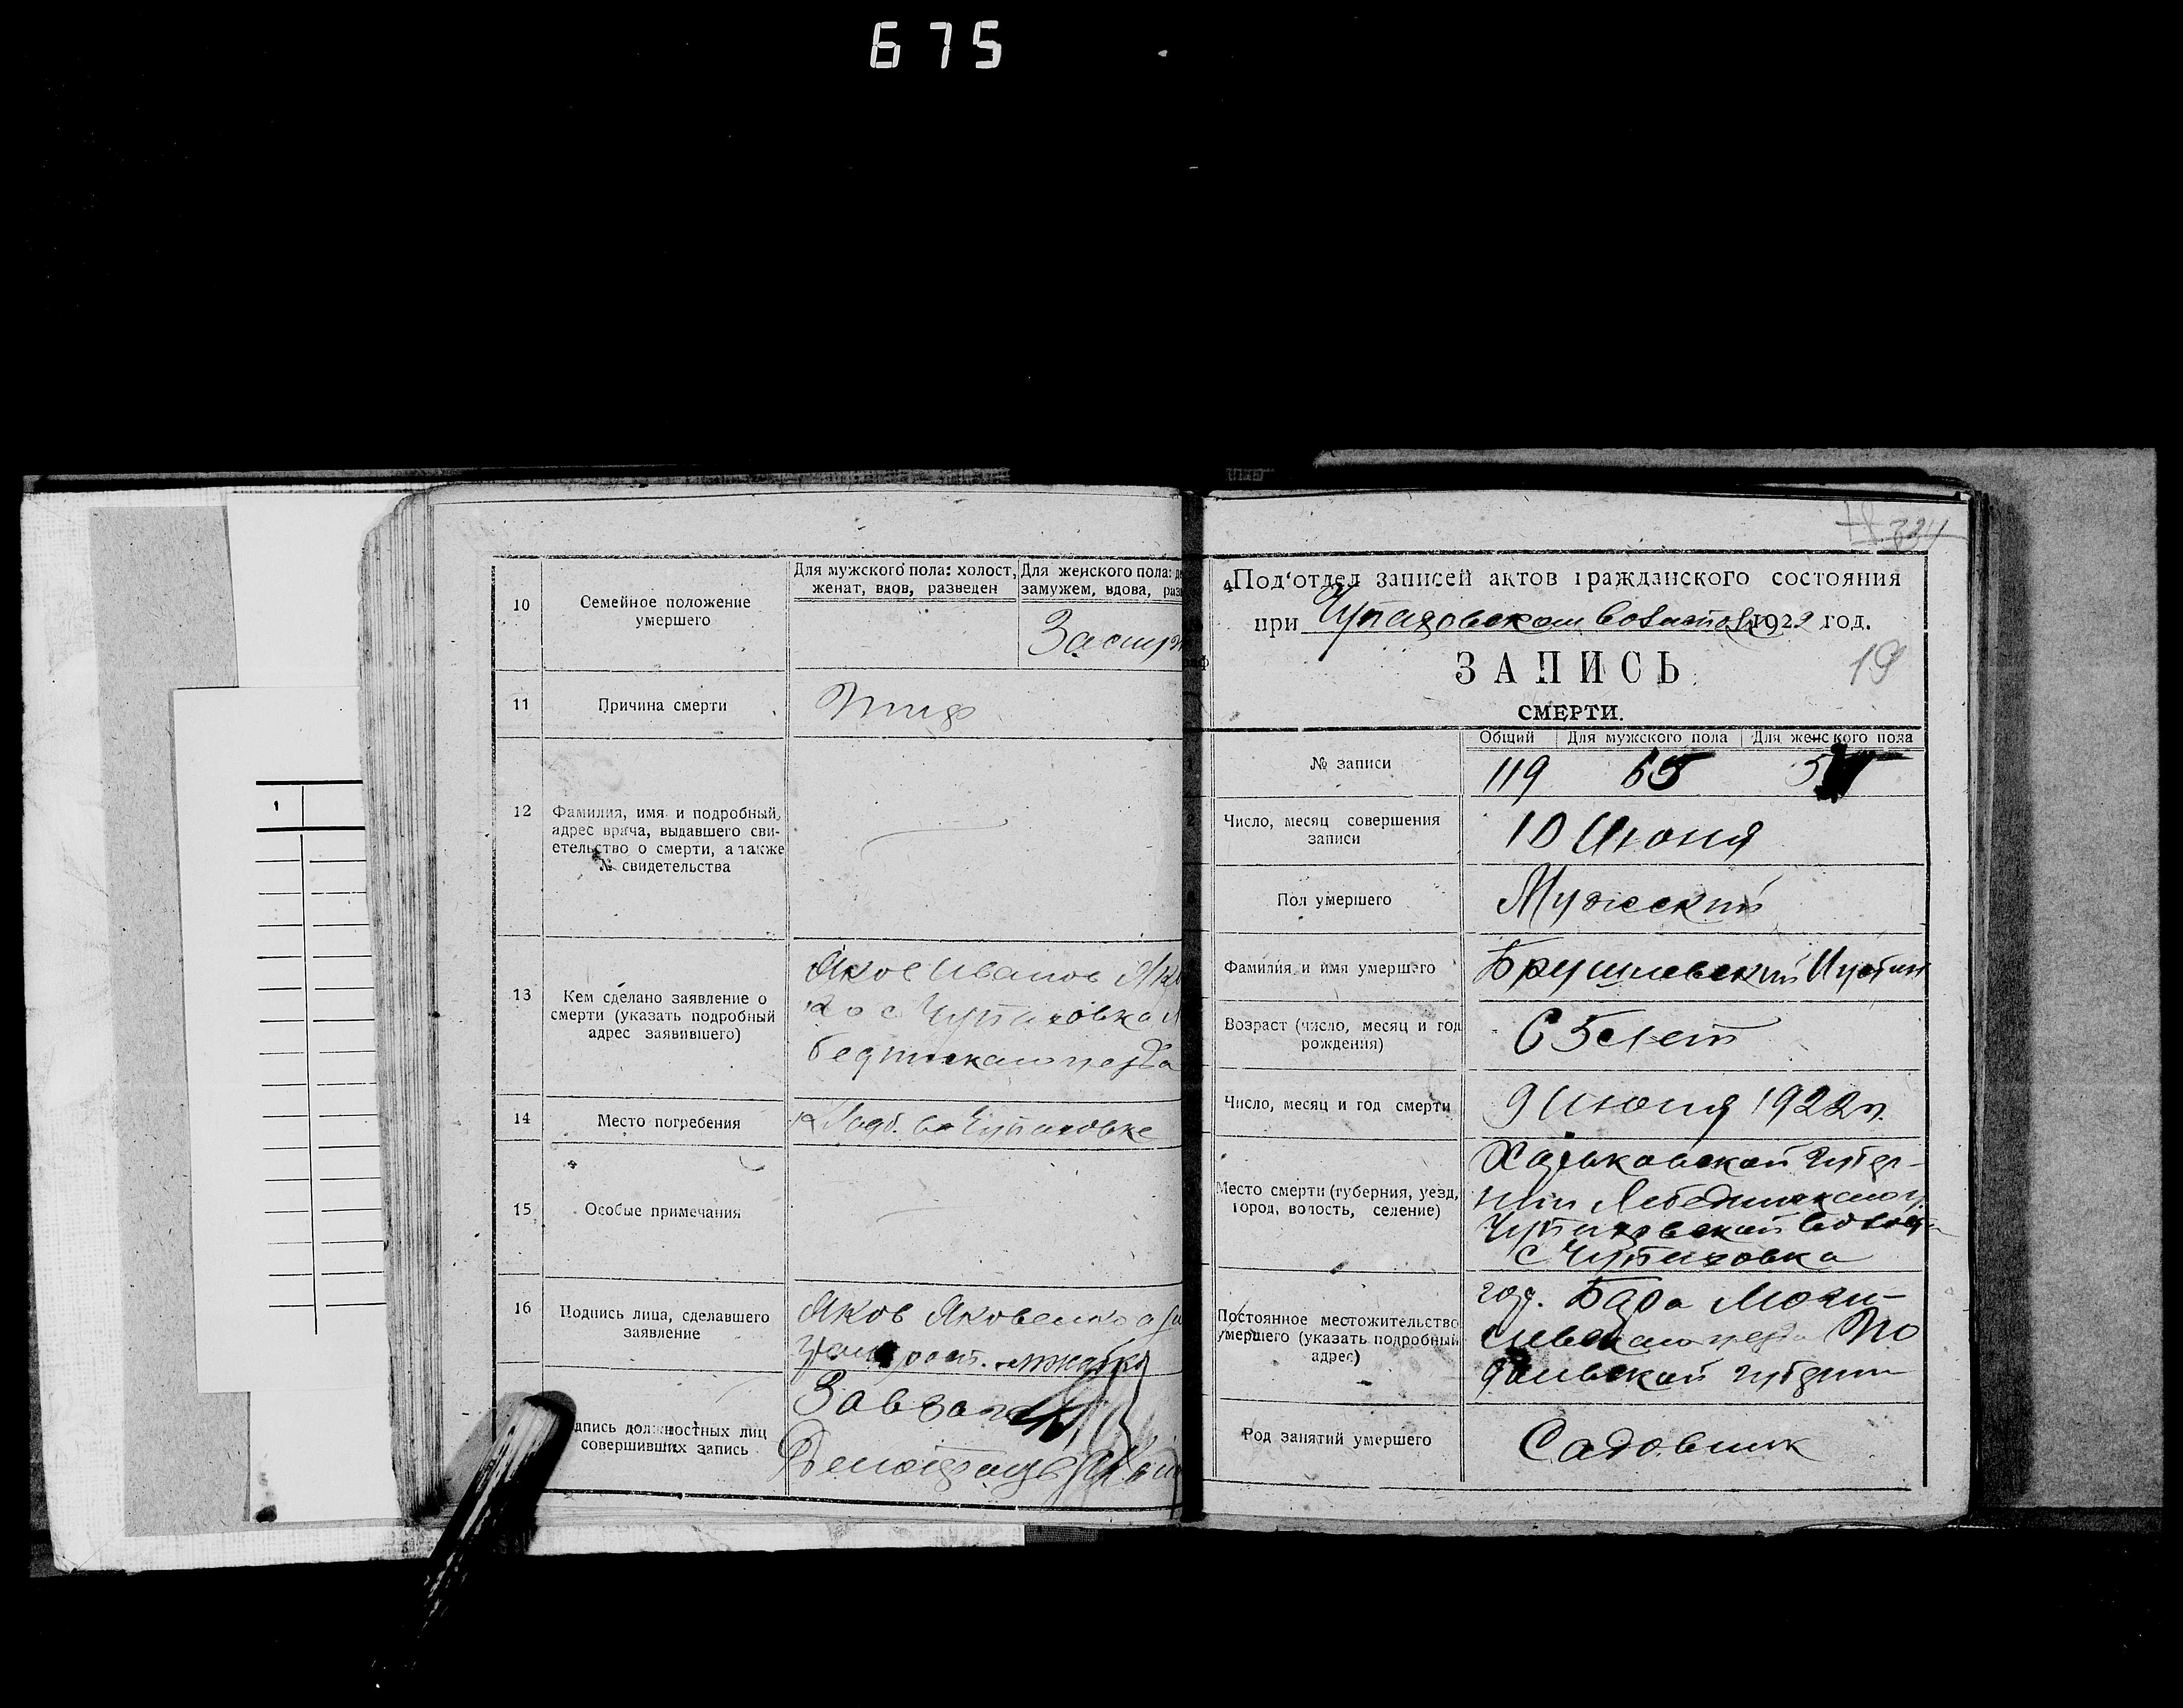 675
10
Семейное положение
умершего
Для мужского пола: холост,
женат, вдов, разведен
Для женского пола: де
замужем, вдова, раз
11
Причина смерти
Тиф
12
Фамилия, имя и подробный
адрес врача, выдавшего сви-
етельство о смерти, а также
№ свидетельства
13
Кем сделано заявление о
смерти (указать подробный
адрес заявившего)
Яков Иванов
с Чупаховка
14
Место погребения
Чупаховке
15
Особые примечания
16
Подпись лица, сделавшего
заявление
Яков Яковенко а за
дпись должностных лиц
совершивших запись
Завзаг
1
Под'отдел записей актов гражданского состояния
при Чупаховском 1922 год.
ЗАПИСЬ
19
СМЕРТИ.
Общий
Для мужского пола
Для женского пола
№ записи
119 65
Число, месяц совершения
записи
10 Июня
Пол умершего
Мужский
Фамилия и имя умершего
Возраст (число, месяц и год
рождения)
65 лет
Число, месяц и год смерти
9 Июня 1922 г.
Место смерти (губерния, уезд,
город, волость, селение)
Харьковской губер-
нии Лебединского у
Чупаховской
с Чупаховка
Постоянное местожительство
умершего (указать подробный
адрес)
гор. Бара Моги-
левского уезда По
дольской губернии
Род занятий умершего
Садовник